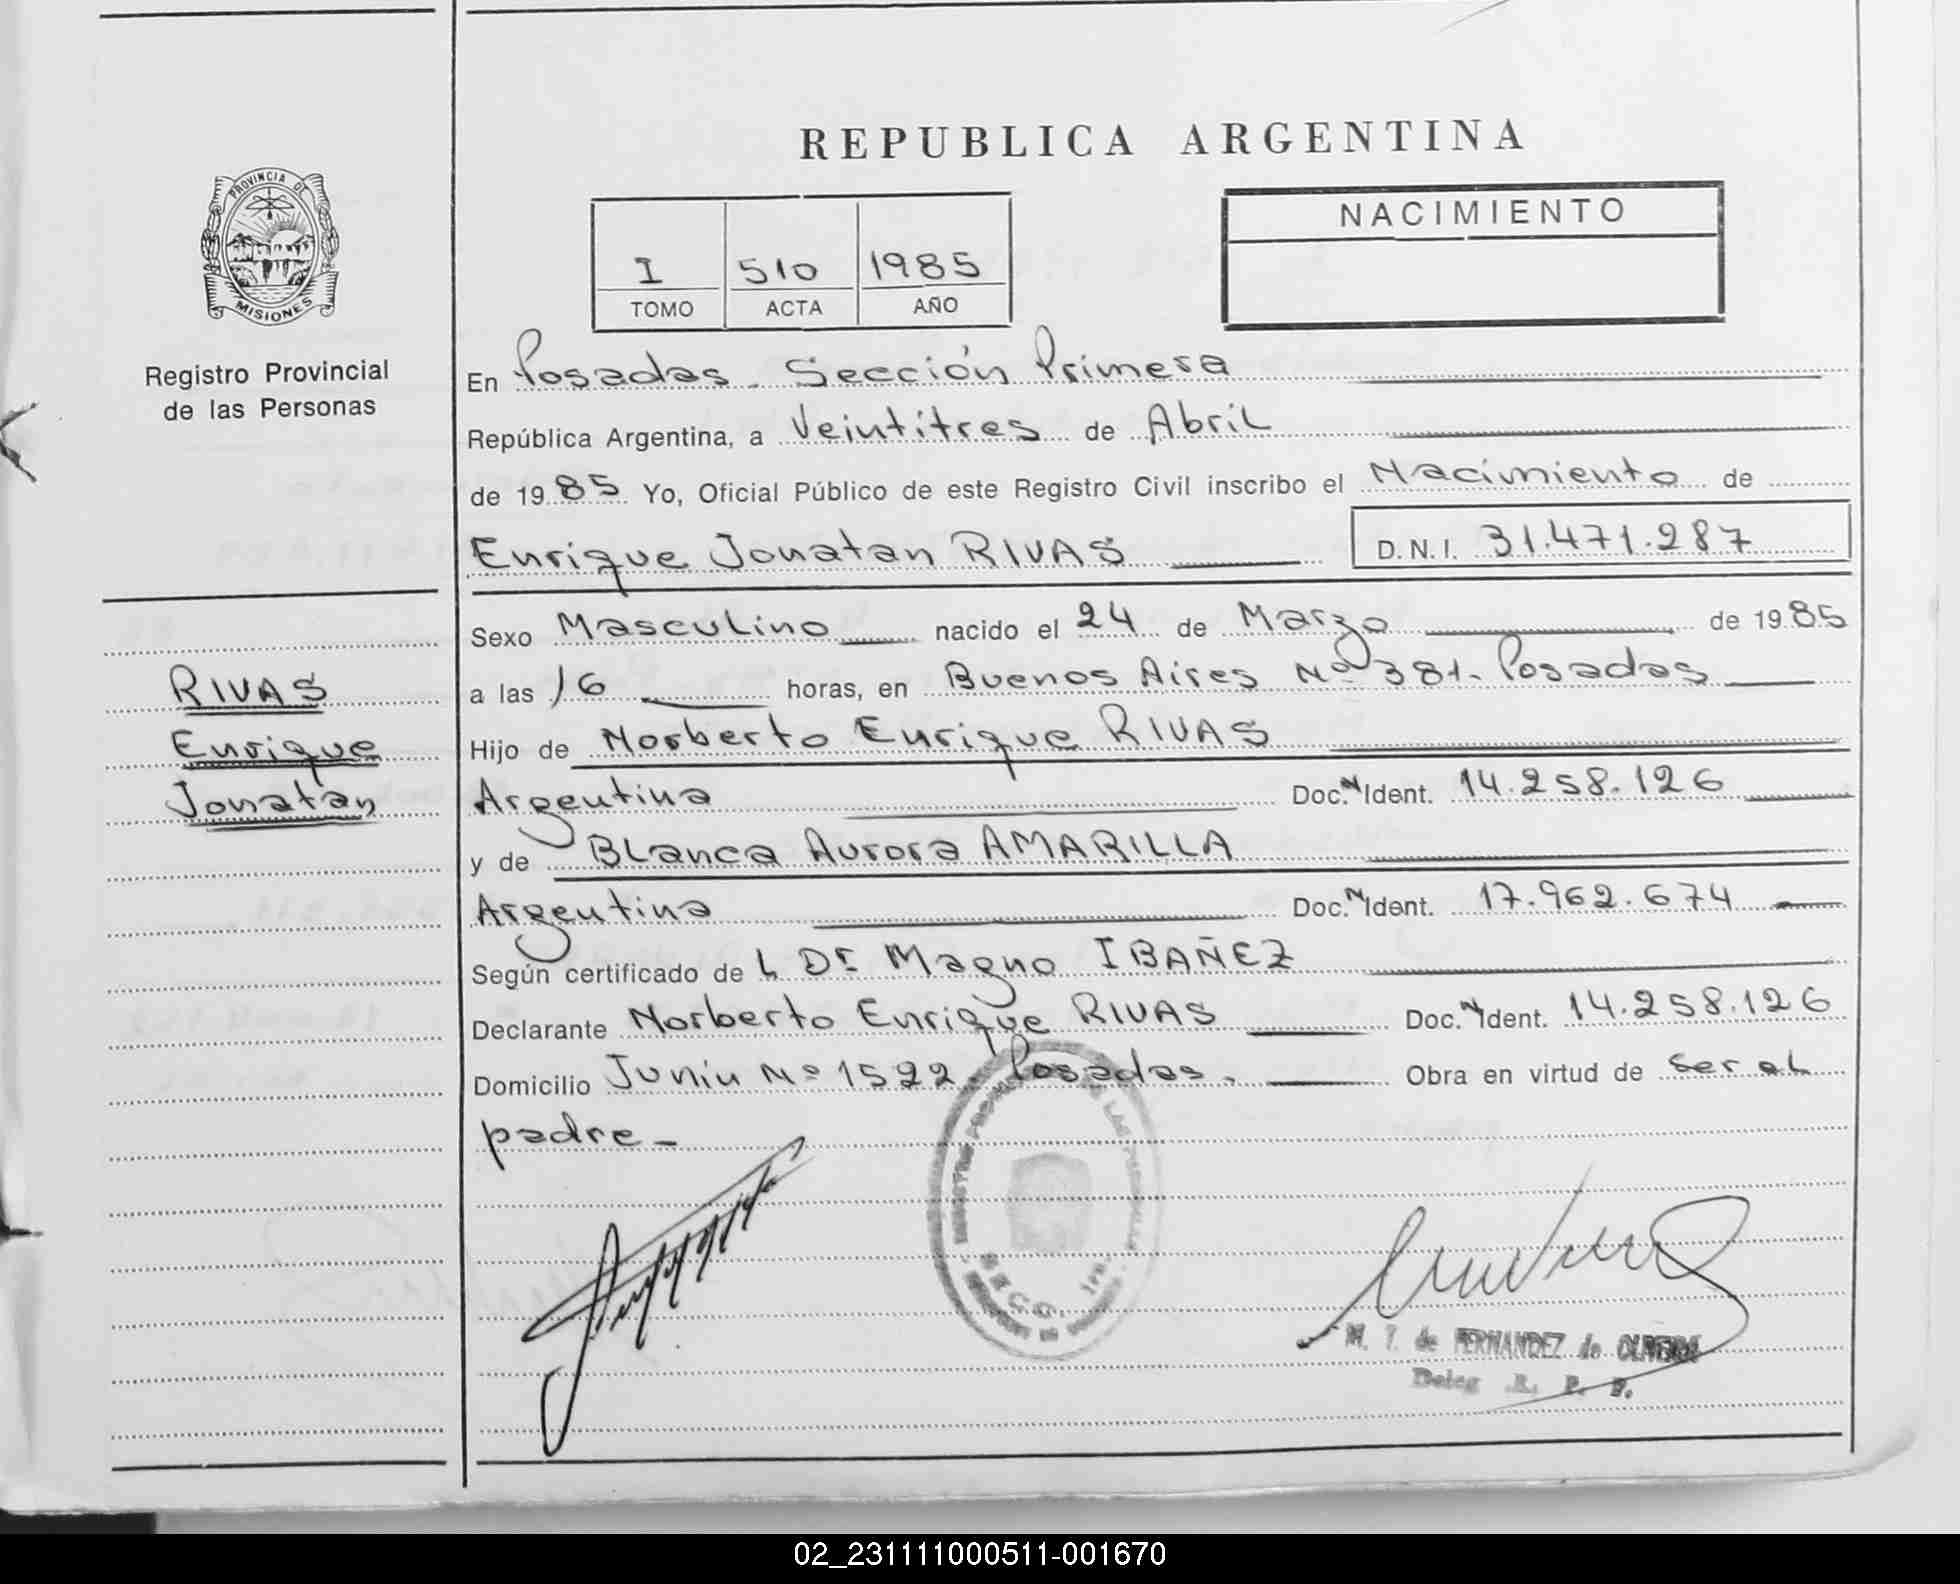 REPUBLICA ARGENTINA
PROVINCIA DE
MISIONES
Registro Provincial
de las Personas
NACIMIENTO
I 510 1985
TOMO ACTA AÑO
En Posadas. Sección Primera
República Argentina, a Veintitres de Abril
de 1985 Yo, Oficial Público de este Registro Civil inscribo el Nacimiento de
Enrique Jonatan RIVAS D.N.I. 31.471.287
Sexo Masculino nacido el 24 de Marzo de 1985
RIVAS
Enrique
Jonatan
a las 16 horas, en Buenos Aires Nº 381. Posadas
Hijo de Norberto Enrique RIVAS
Argentina Doc. N Ident. 14.258.126
y de Blanca Aurora AMARILLA
Argentina Doc. N Ident. 17.962.674
Según certificado de L Dr. Magno IBAÑEZ
Declarante Norberto Enrique RIVAS Doc. N Ident. 14.258.126
Domicilio Junin Nº 1522. Posadas. Obra en virtud de ser el
padre -
M. T. de FERNANDEZ de OLIVEIRA
Deleg. R. P. P.
02_231111000511-001670